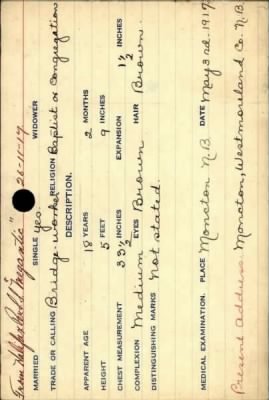 From Halifax per S.S. "Megantic" 26-11-17
MARRIED SINGLE yes. WIDOWER
TRADE OR CALLING Bridge-worker RELIGION Baptist or Congregationalist
DESCRIPTION.
APPARENT AGE 18 YEARS 2 MONTHS
HEIGHT 5 FEET 9 INCHES
CHEST MEASUREMENT 33½ INCHES EXPANSION 1½ INCHES
COMPLEXION Medium EYES Brown HAIR Brown.
DISTINGUISHING MARKS Not stated.
MEDICAL EXAMINATION. PLACE Moncton N.B. DATE May 3rd. 1917
Present Address: Moncton, Westmoreland Co. N.B.